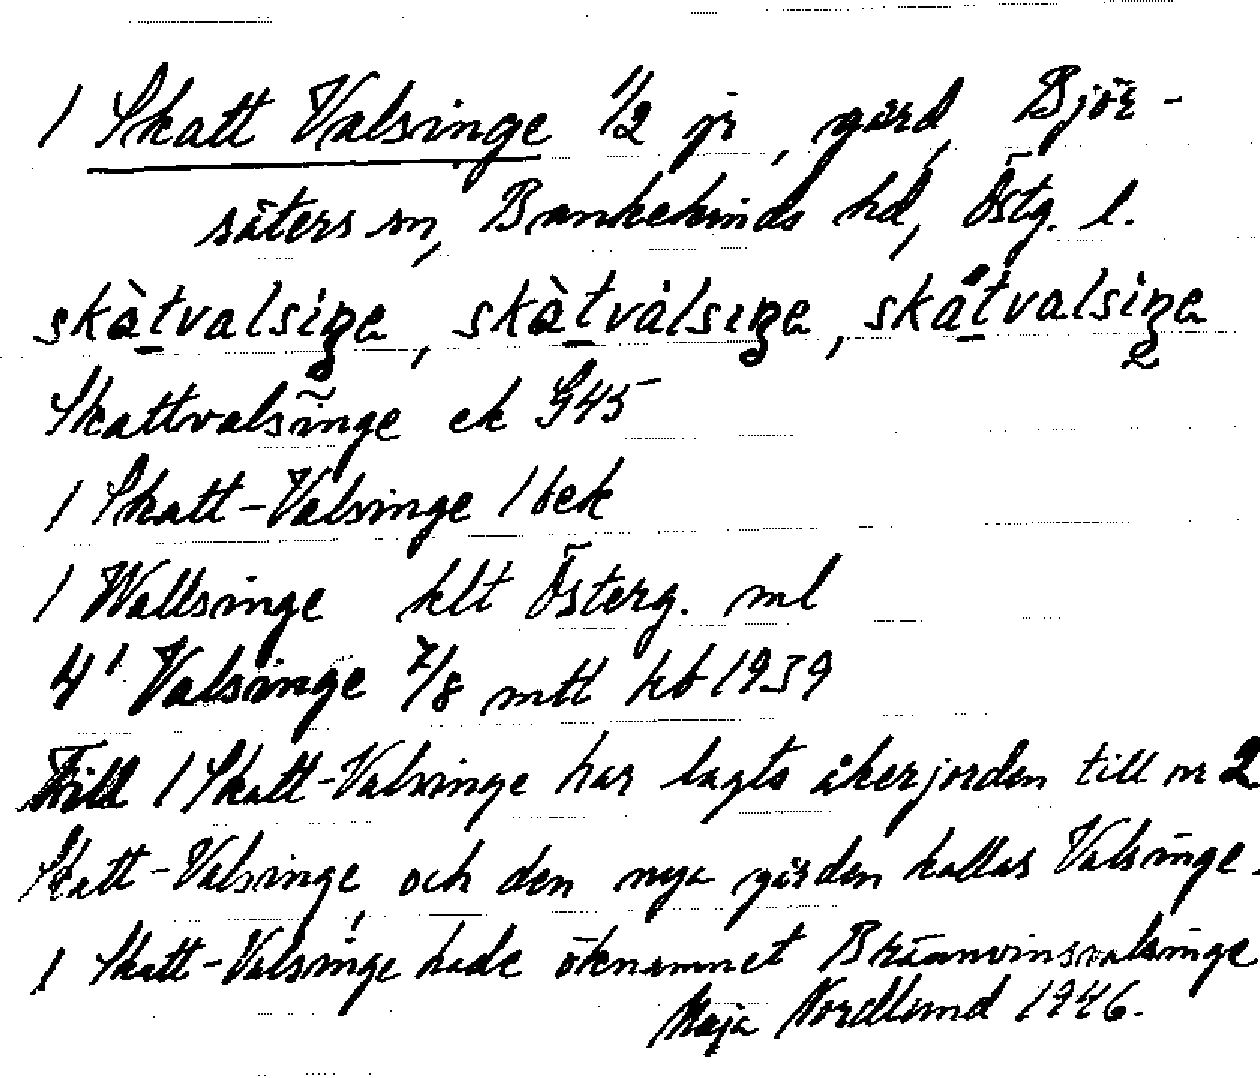 1 Skatt Valsinge 1/2 jr, gård, Björ-
säters sn, Bankekinds hd, Östg. l.
skàtvalsiŋe, skàtvàlsiŋe, skåtvalsiŋe
Skattvalsinge ek G45
1 Skatt-Valsinge 1 bek
1 Wallsinge klt Österg. ml
4¹ Valsinge 7/8 mtl kb 1939
Till 1 Skatt-Valsinge har lagts åkerjorden till nr 2
Skatt-Valsinge, och den nya gården kallas Valsinge.
1 Skatt-Valsinge hade öknamnet Brännvinsvalsinge
Maja Nordlund 1946.